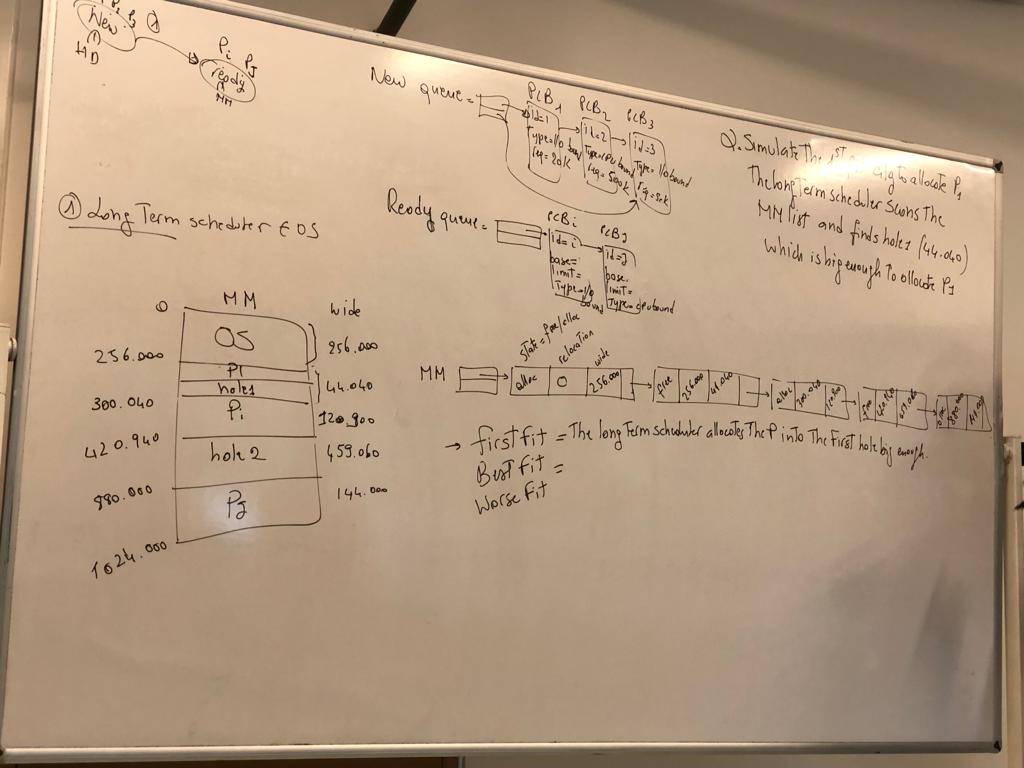 New
HD
Pi PJ
ready
MM
New queue =
PCB1 PCB2 PCB3
id=1
Type=I/o bound
req=20k
id=2
Type=CPU bound
req=500k
id=3
Type=I/o bound
Q. Simulate The 1ST to allocate P1
The long Term scheduler Scans The
MM list and finds hole1 (44.040)
which is big enough to allocate P1
① Long Term scheduler ∈ OS
Ready queue =
PCBi PCBJ
id=i
base=
limit=
Type=I/o
bound
id=J
base=
limit=
Type=cpu bound
MM wide
0
OS 256.000
256.000
P1
hole1 44.040
300.040
Pi 120.900
420.940
hole 2 459.060
880.000
PJ 144.000
1024.000
State=free/alloc
relocation
wide
MM
alloc 0 256.000
free 256.000 44.040
→ first fit = The long Term scheduler allocates The P into The First hole big enough.
Best fit =
Worse Fit